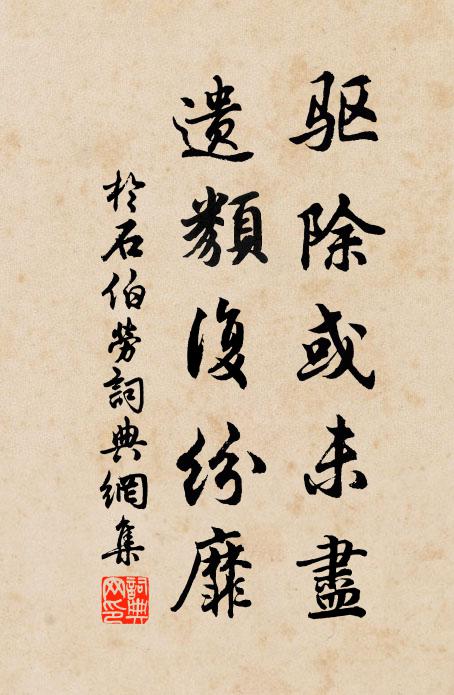 驱除或未盡
遺類復紛靡
於石伯勞詞典網集
詞典網印